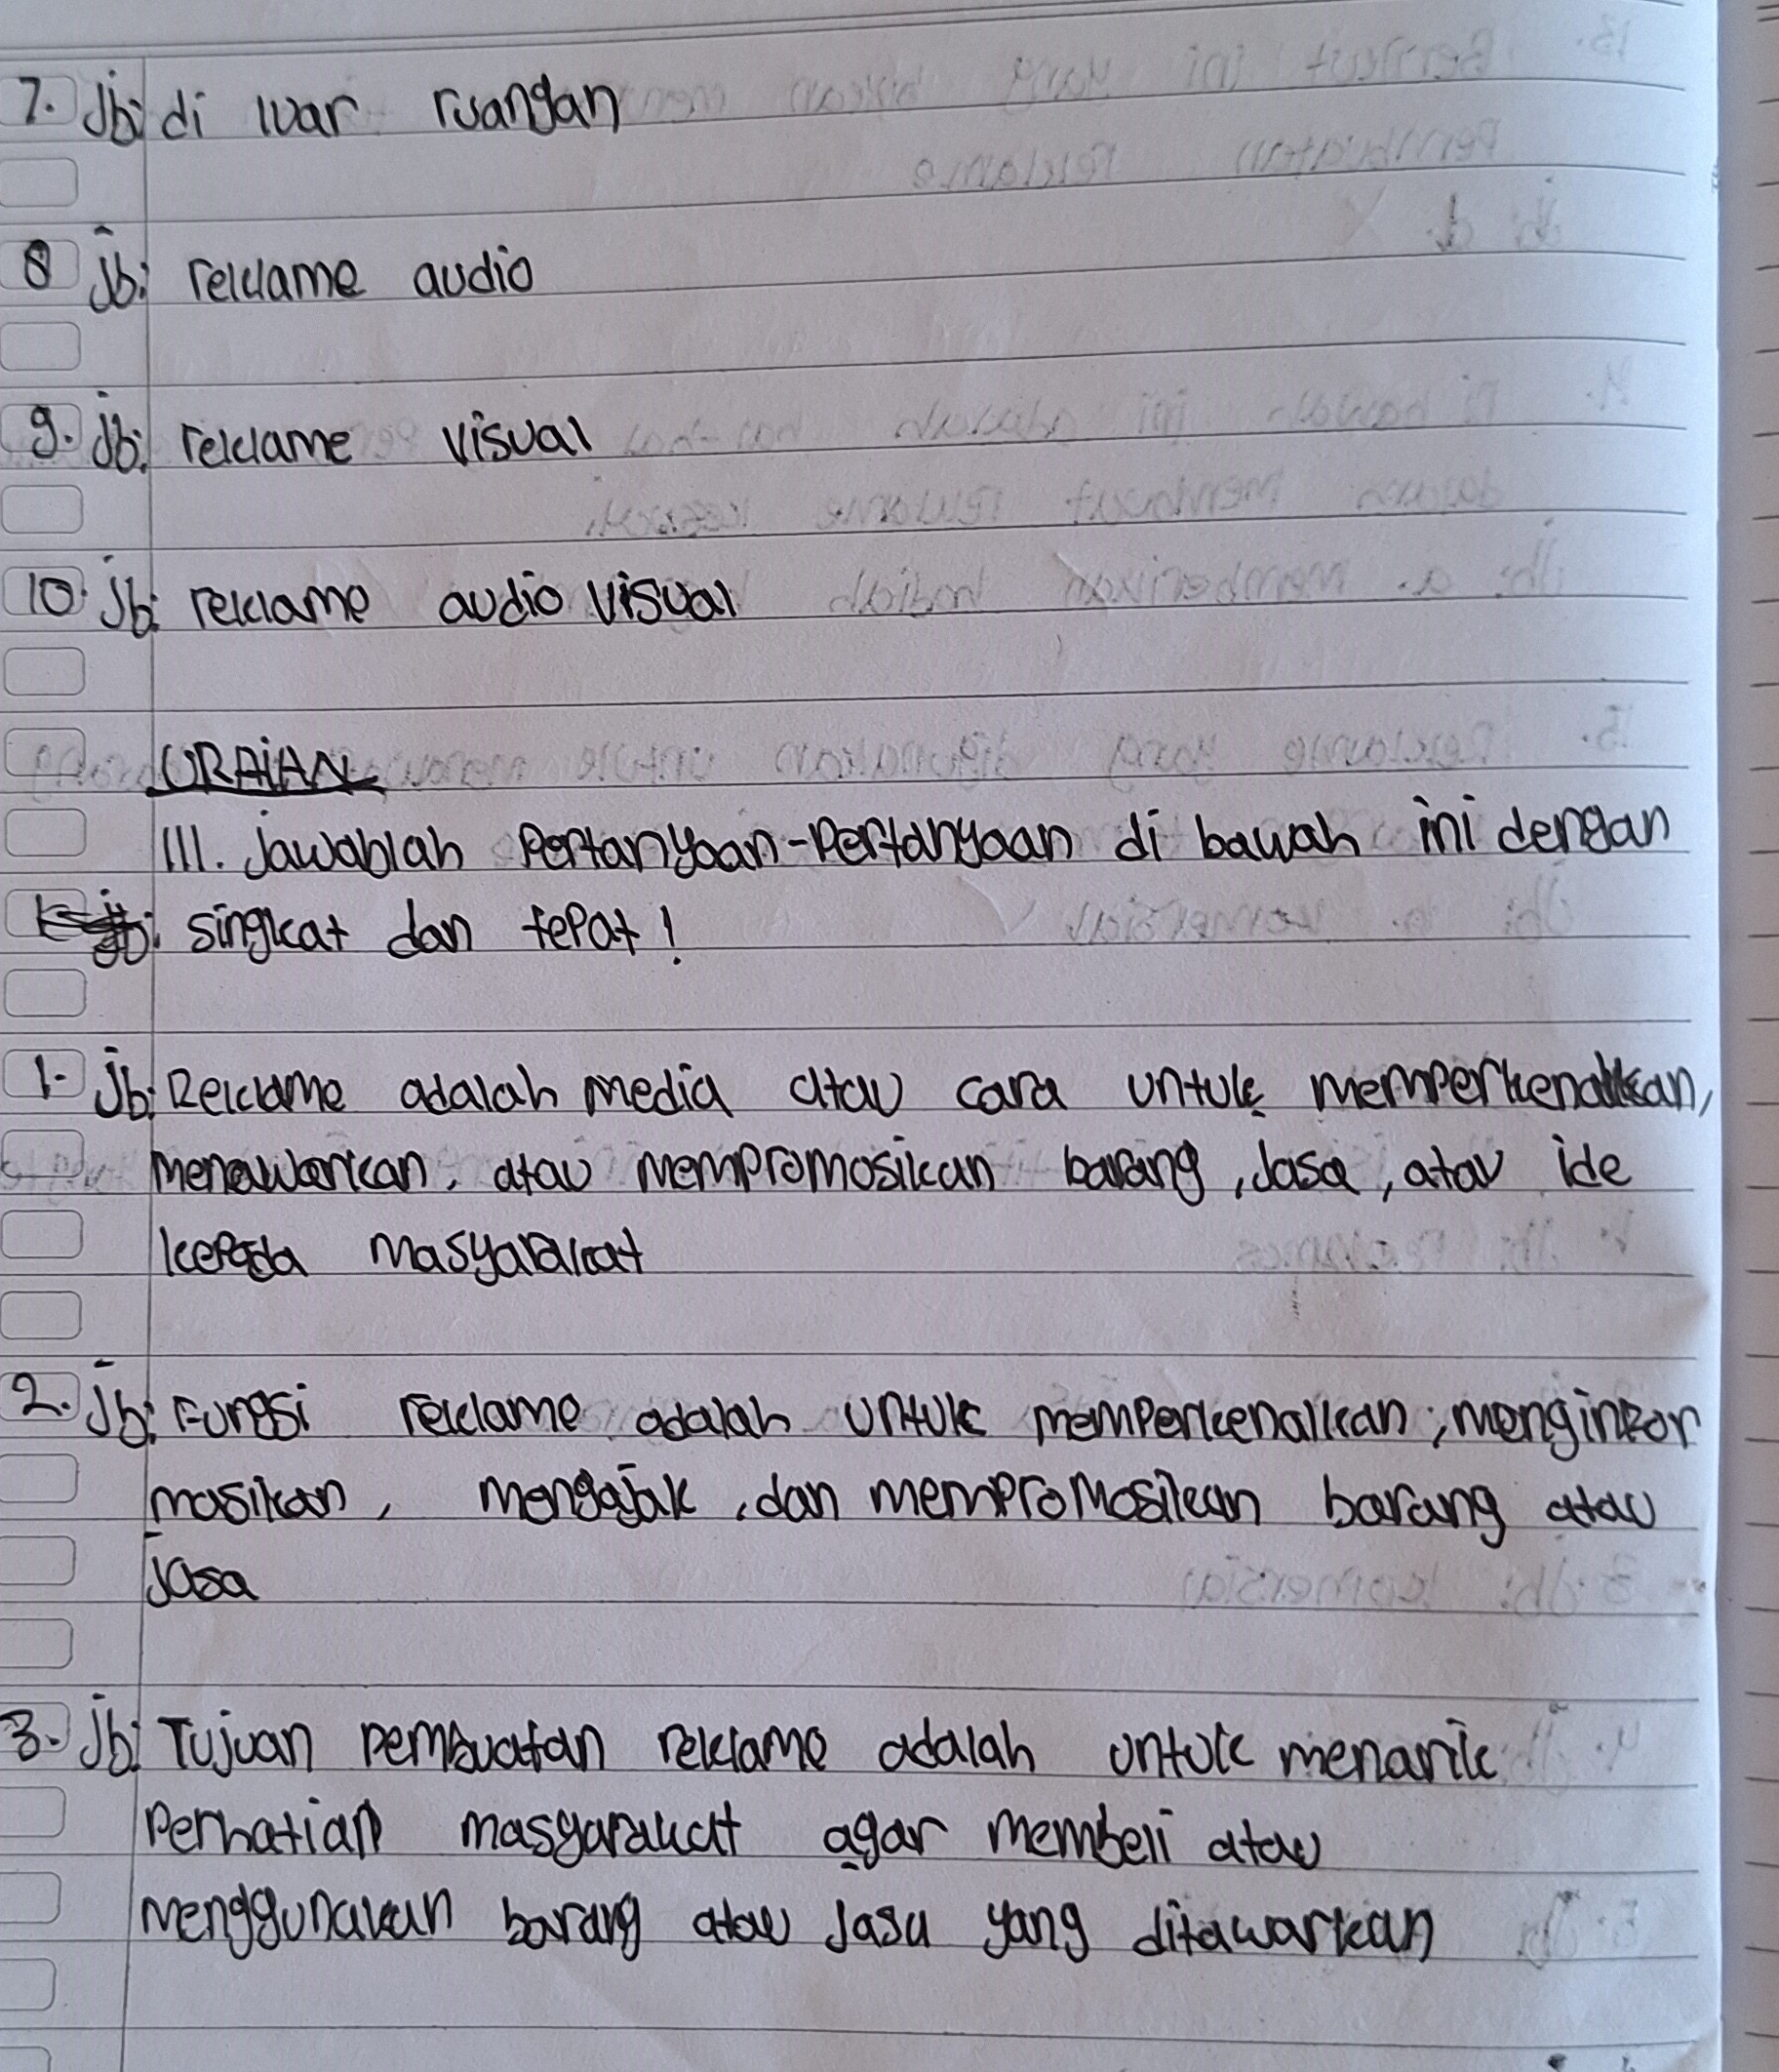 7. Jb: di luar ruangan
8 Jb: reklame audio
9. Jb: reklame visual
10. Jb: reklame audio visual
URAIAN
III. Jawablah Pertanyaan-Pertanyaan di bawah ini dengan
singkat dan tepat!
1. Jb: Reklame adalah media atau cara untuk memperkenalkan,
menawarkan, atau mempromosikan barang, Jasa, atau ide
kepada masyarakat
2. Jb: Fungsi reklame adalah untuk memperkenalkan, menginfor
masikan, mengajak, dan mempromosikan barang atau
Jasa
3. Jb: Tujuan pembuatan reklame adalah untuk menarik
Perhatian masyarakat agar membeli atau
menggunakan barang atau Jasa yang ditawarkan